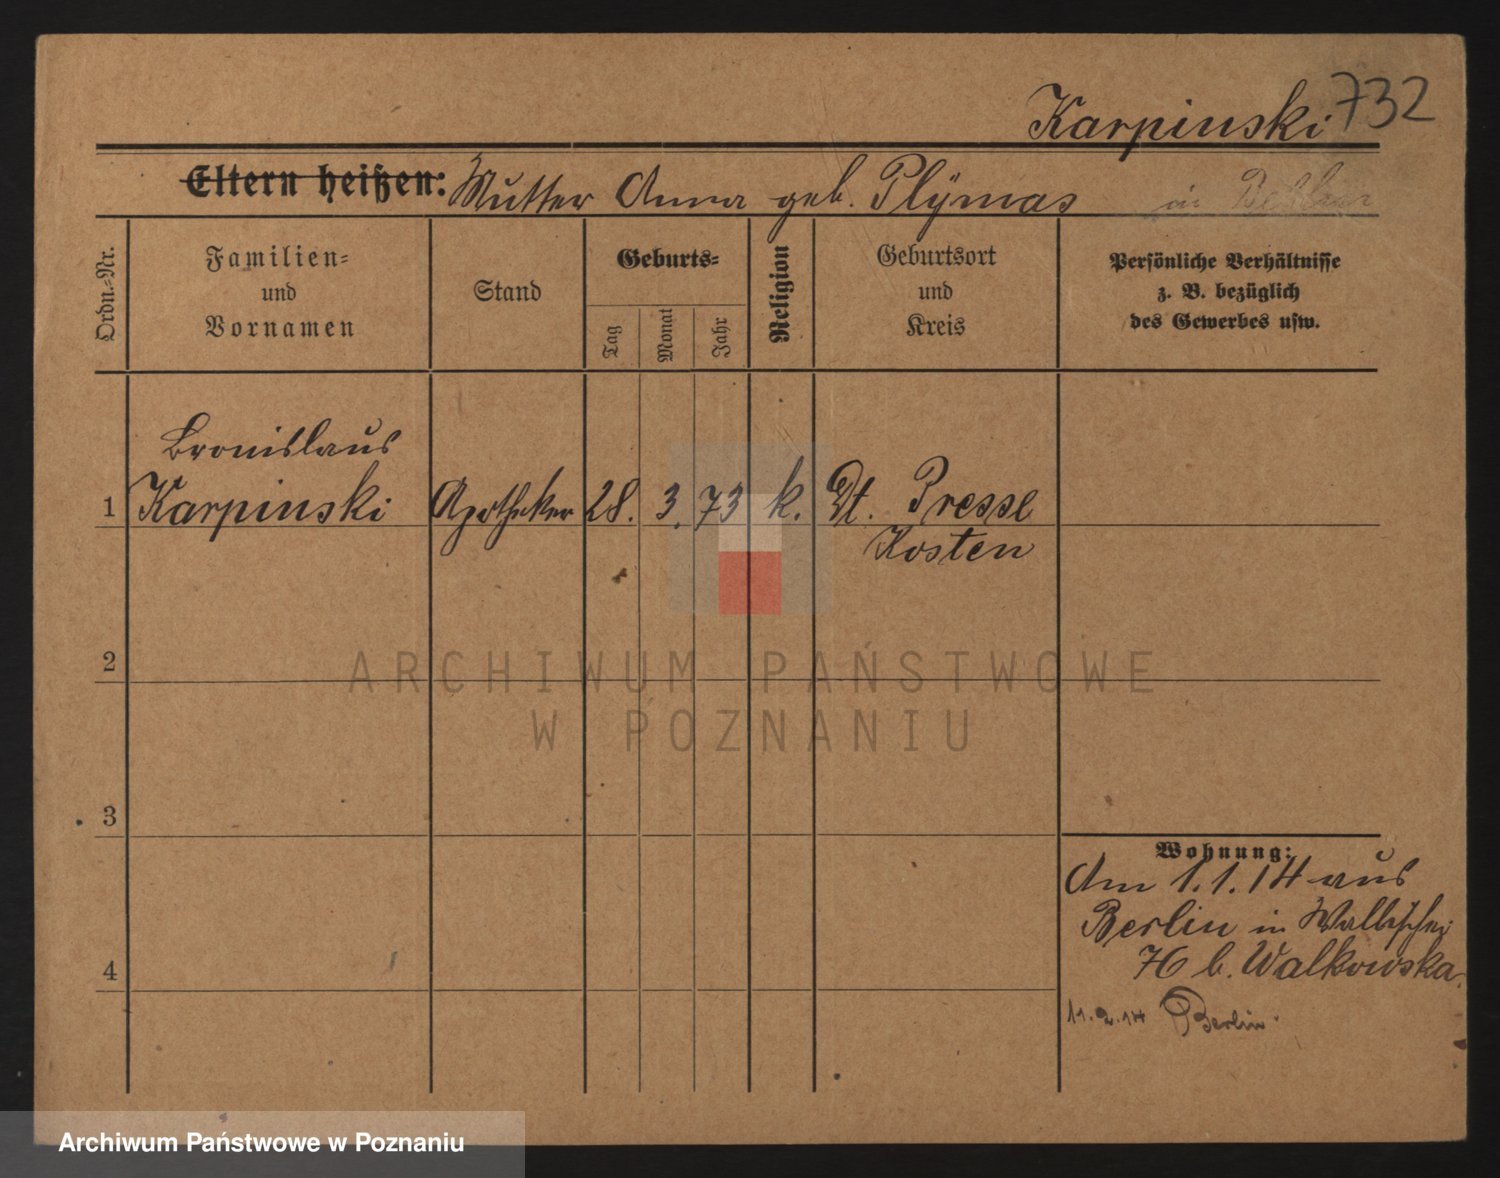 Karpinski 732
Eltern heißen: Mutter Anna geb. Plÿmas in
Ordn.-Nr.
Familien-
und
Vornamen
Stand
Geburts-
Tag
Monat
Jahr
Religion
Geburtsort
und
Kreis
Persönliche Verhältnisse
z. B. bezüglich
des Gewerbes usw.
Bronislaus
1 Karpinski Apotheker 28. 3. 73 k. Dt. Presse
Kosten
2
ARCHIWUM PAŃSTWOWE
W POZNANIU
3
Wohnung:
Am 1.1.14 aus
Berlin in Wallischei
76 b. Walkowska.
4
11.2.14 Berlin.
Archiwum Państwowe w Poznaniu